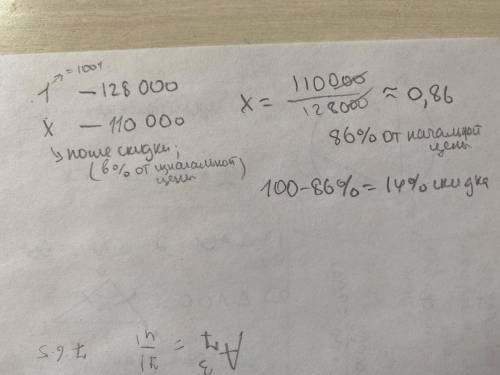 1 = 100%
— 128 000
x — 110 000
после скидки;
(в % от изначальной
цены)
x = 110000 / 128000 ≈ 0,86
86% от начальной
цены
100-86% = 14% скидка
A₇³ = 7! / 4! 7·6·5